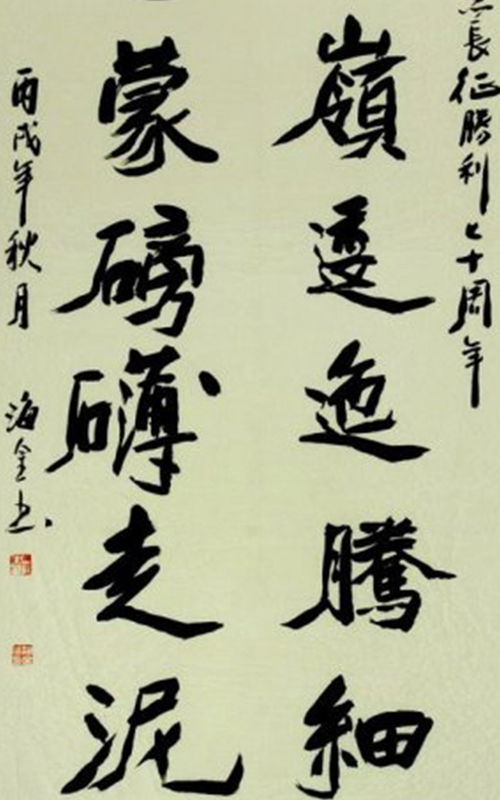 長征勝利七十周年
嶺逶迤騰細
蒙磅礴走泥
丙戌年秋月 海金書